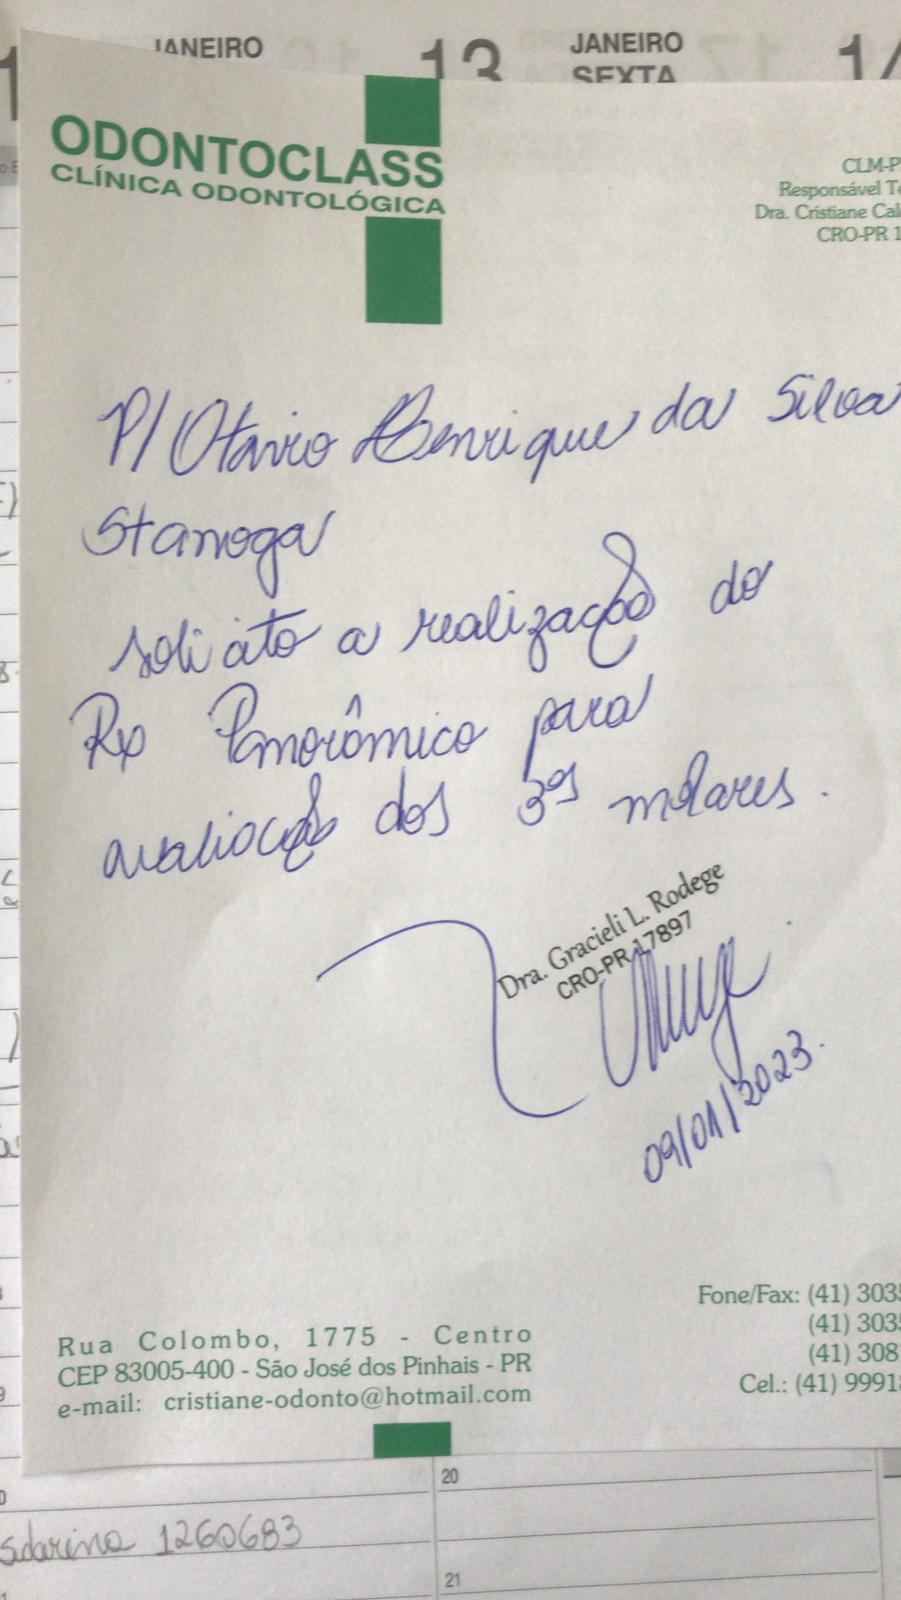 JANEIRO
13
JANEIRO
SEXTA
14
ODONTOCLASS
CLÍNICA ODONTOLÓGICA
CLM-P
Responsável Te
Dra. Cristiane Cal
CRO-PR 1
P/ Otavio Henrique da Silva
Stanoga
solicito a realização do
Rx Panorâmico para
avaliação dos 3ºs molares.
Dra. Gracieli L. Rodege
CRO-PR 17897
09/01/2023.
Rua Colombo, 1775 - Centro
CEP 83005-400 - São José dos Pinhais - PR
e-mail: cristiane-odonto@hotmail.com
Fone/Fax: (41) 3035
(41) 3035
(41) 308
Cel.: (41) 9991
20
1260683
21